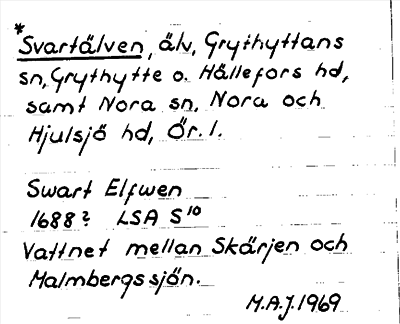 *Svartälven, älv, Grythyttans
sn, Grythytte o. Hällefors hd,
samt Nora sn, Nora och
Hjulsjö hd, Ör. l.
Swart Elfwen
1688? LSA S¹⁰
Vattnet mellan Skärjen och
Malmbergssjön.
M.A.J. 1969